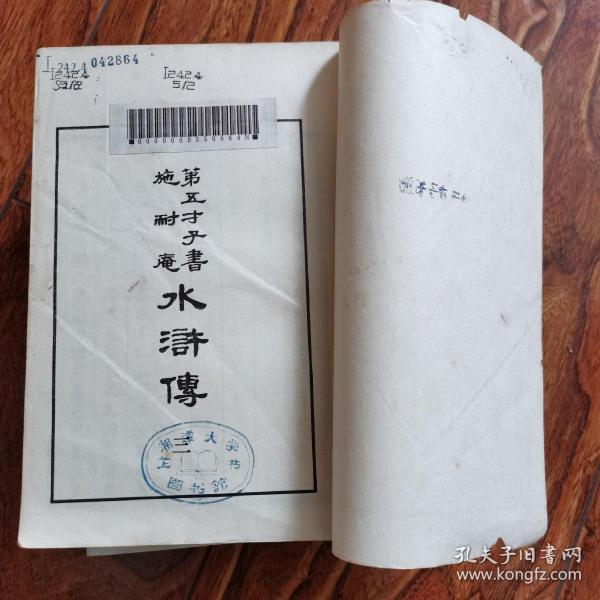 I242.4 042864
I242.4
S2/2
I242.4
5/2
0000000250564N
第五才子書
施耐庵
水滸傳
三
湘潭大学
图书馆
孔夫子旧书网
www.kongfz.com